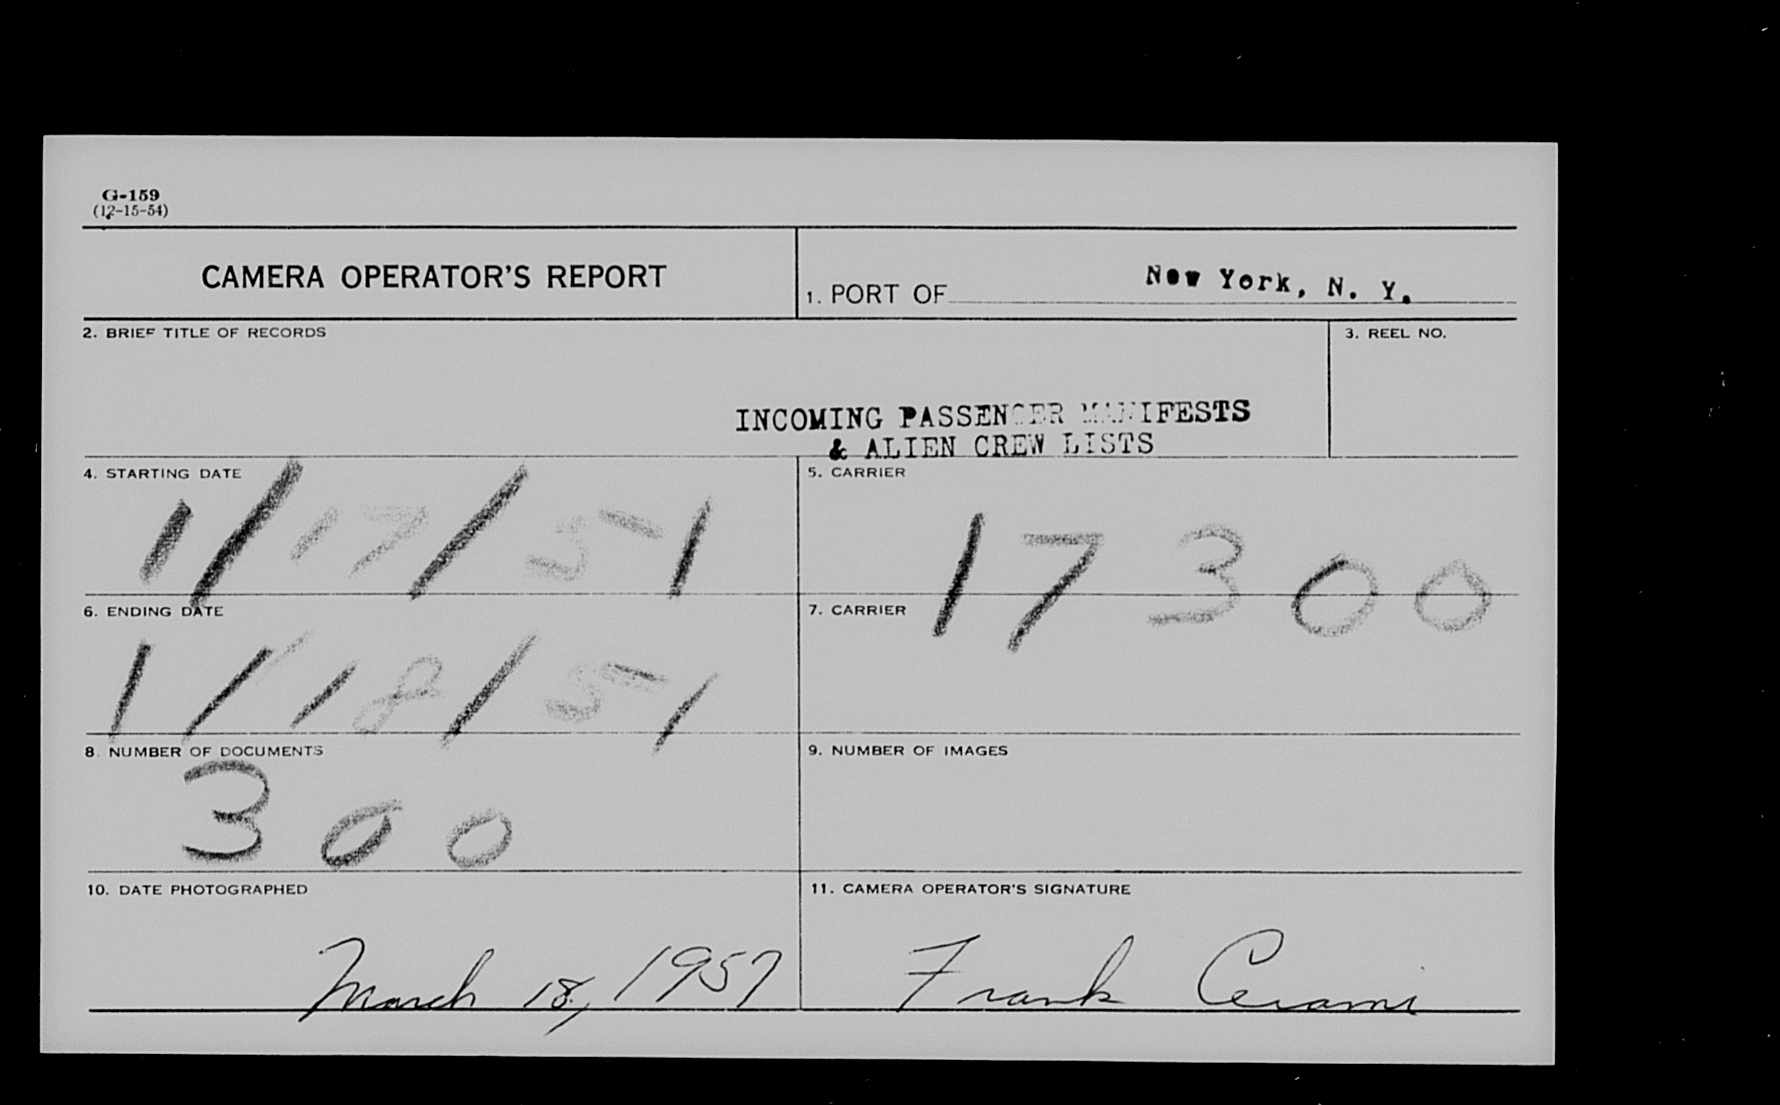 G-159
(12-15-54)
CAMERA OPERATOR'S REPORT
1. PORT OF New York, N. Y.
2. BRIEF TITLE OF RECORDS
3. REEL NO.
INCOMING PASSENGER MANIFESTS
& ALIEN CREW LISTS
4. STARTING DATE
1/17/51
5. CARRIER
17300
6. ENDING DATE
1/18/51
7. CARRIER
8. NUMBER OF DOCUMENTS
300
9. NUMBER OF IMAGES
10. DATE PHOTOGRAPHED
March 18, 1957
11. CAMERA OPERATOR'S SIGNATURE
Frank Cerami